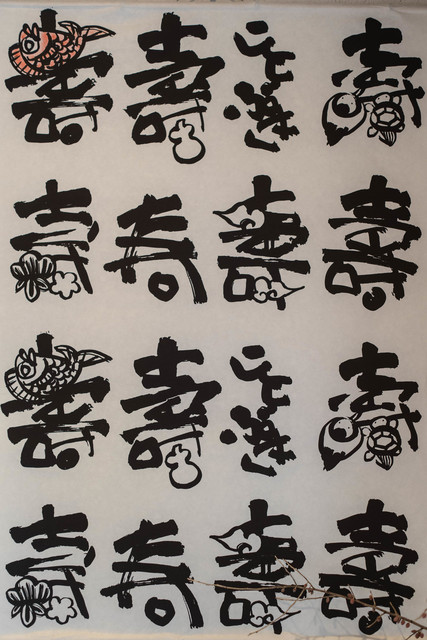 壽 壽 ことぶき 壽
壽 寿 壽 壽
壽 壽 ことぶき 壽
壽 寿 壽 壽